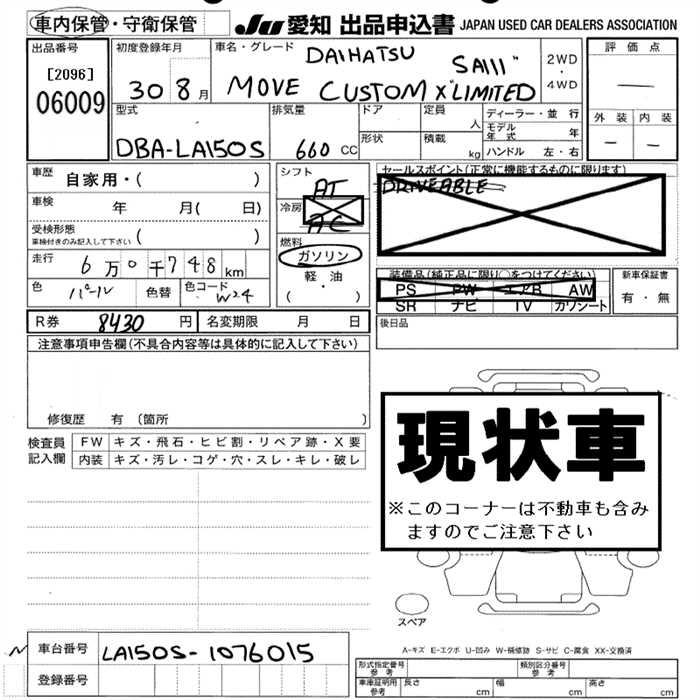 車内保管・守衛保管 JU 愛知 出品申込書 JAPAN USED CAR DEALERS ASSOCIATION
出品番号 初度登録年月 車名・グレード 評価点
[2096] 06009
30 8月
DAIHATSU
MOVE CUSTOM X"LIMITED SAIII"
2WD・4WD
外装 内装
型式 排気量 ドア 定員 人 ディーラー・並行
モデル年式 年
DBA-LA150S 660 CC 形状 積載 kg ハンドル 左・右
車歴 自家用・( )
車検 年 月( 日)
受検形態 ( )
車検付きのみ記入して下さい
走行 6万0千748km
色 パール 色替 色コード W24
シフト AT
冷房 AC
燃料
ガソリン
軽・油
( ・ )
セールスポイント(正常に機能するものに限ります)
DRIVEABLE
装備品(純正品に限り○をつけてください) 新車保証書
PS PW エアB AW
SR ナビ TV カワシート
有・無
R券 8430 円 名変期限 月 日
後日品
注意事項申告欄(不具合内容等は具体的に記入して下さい)
修復歴 有(箇所 )
検査員記入欄 FW キズ・飛石・ヒビ割・リペア跡・X要
内装 キズ・汚レ・コゲ・穴・スレ・キレ・破レ
現状車
※このコーナーは不動車も含み
ますのでご注意下さい
スペア
A-キズ E-エクボ U-凹み W-補修跡 S-サビ C-腐食 XX-交換済
車台番号 LA150S-1076015
登録番号
形式指定番号 参考 類別区分番号 参考
車庫証明用 参考 長さ cm 幅 cm 高さ cm